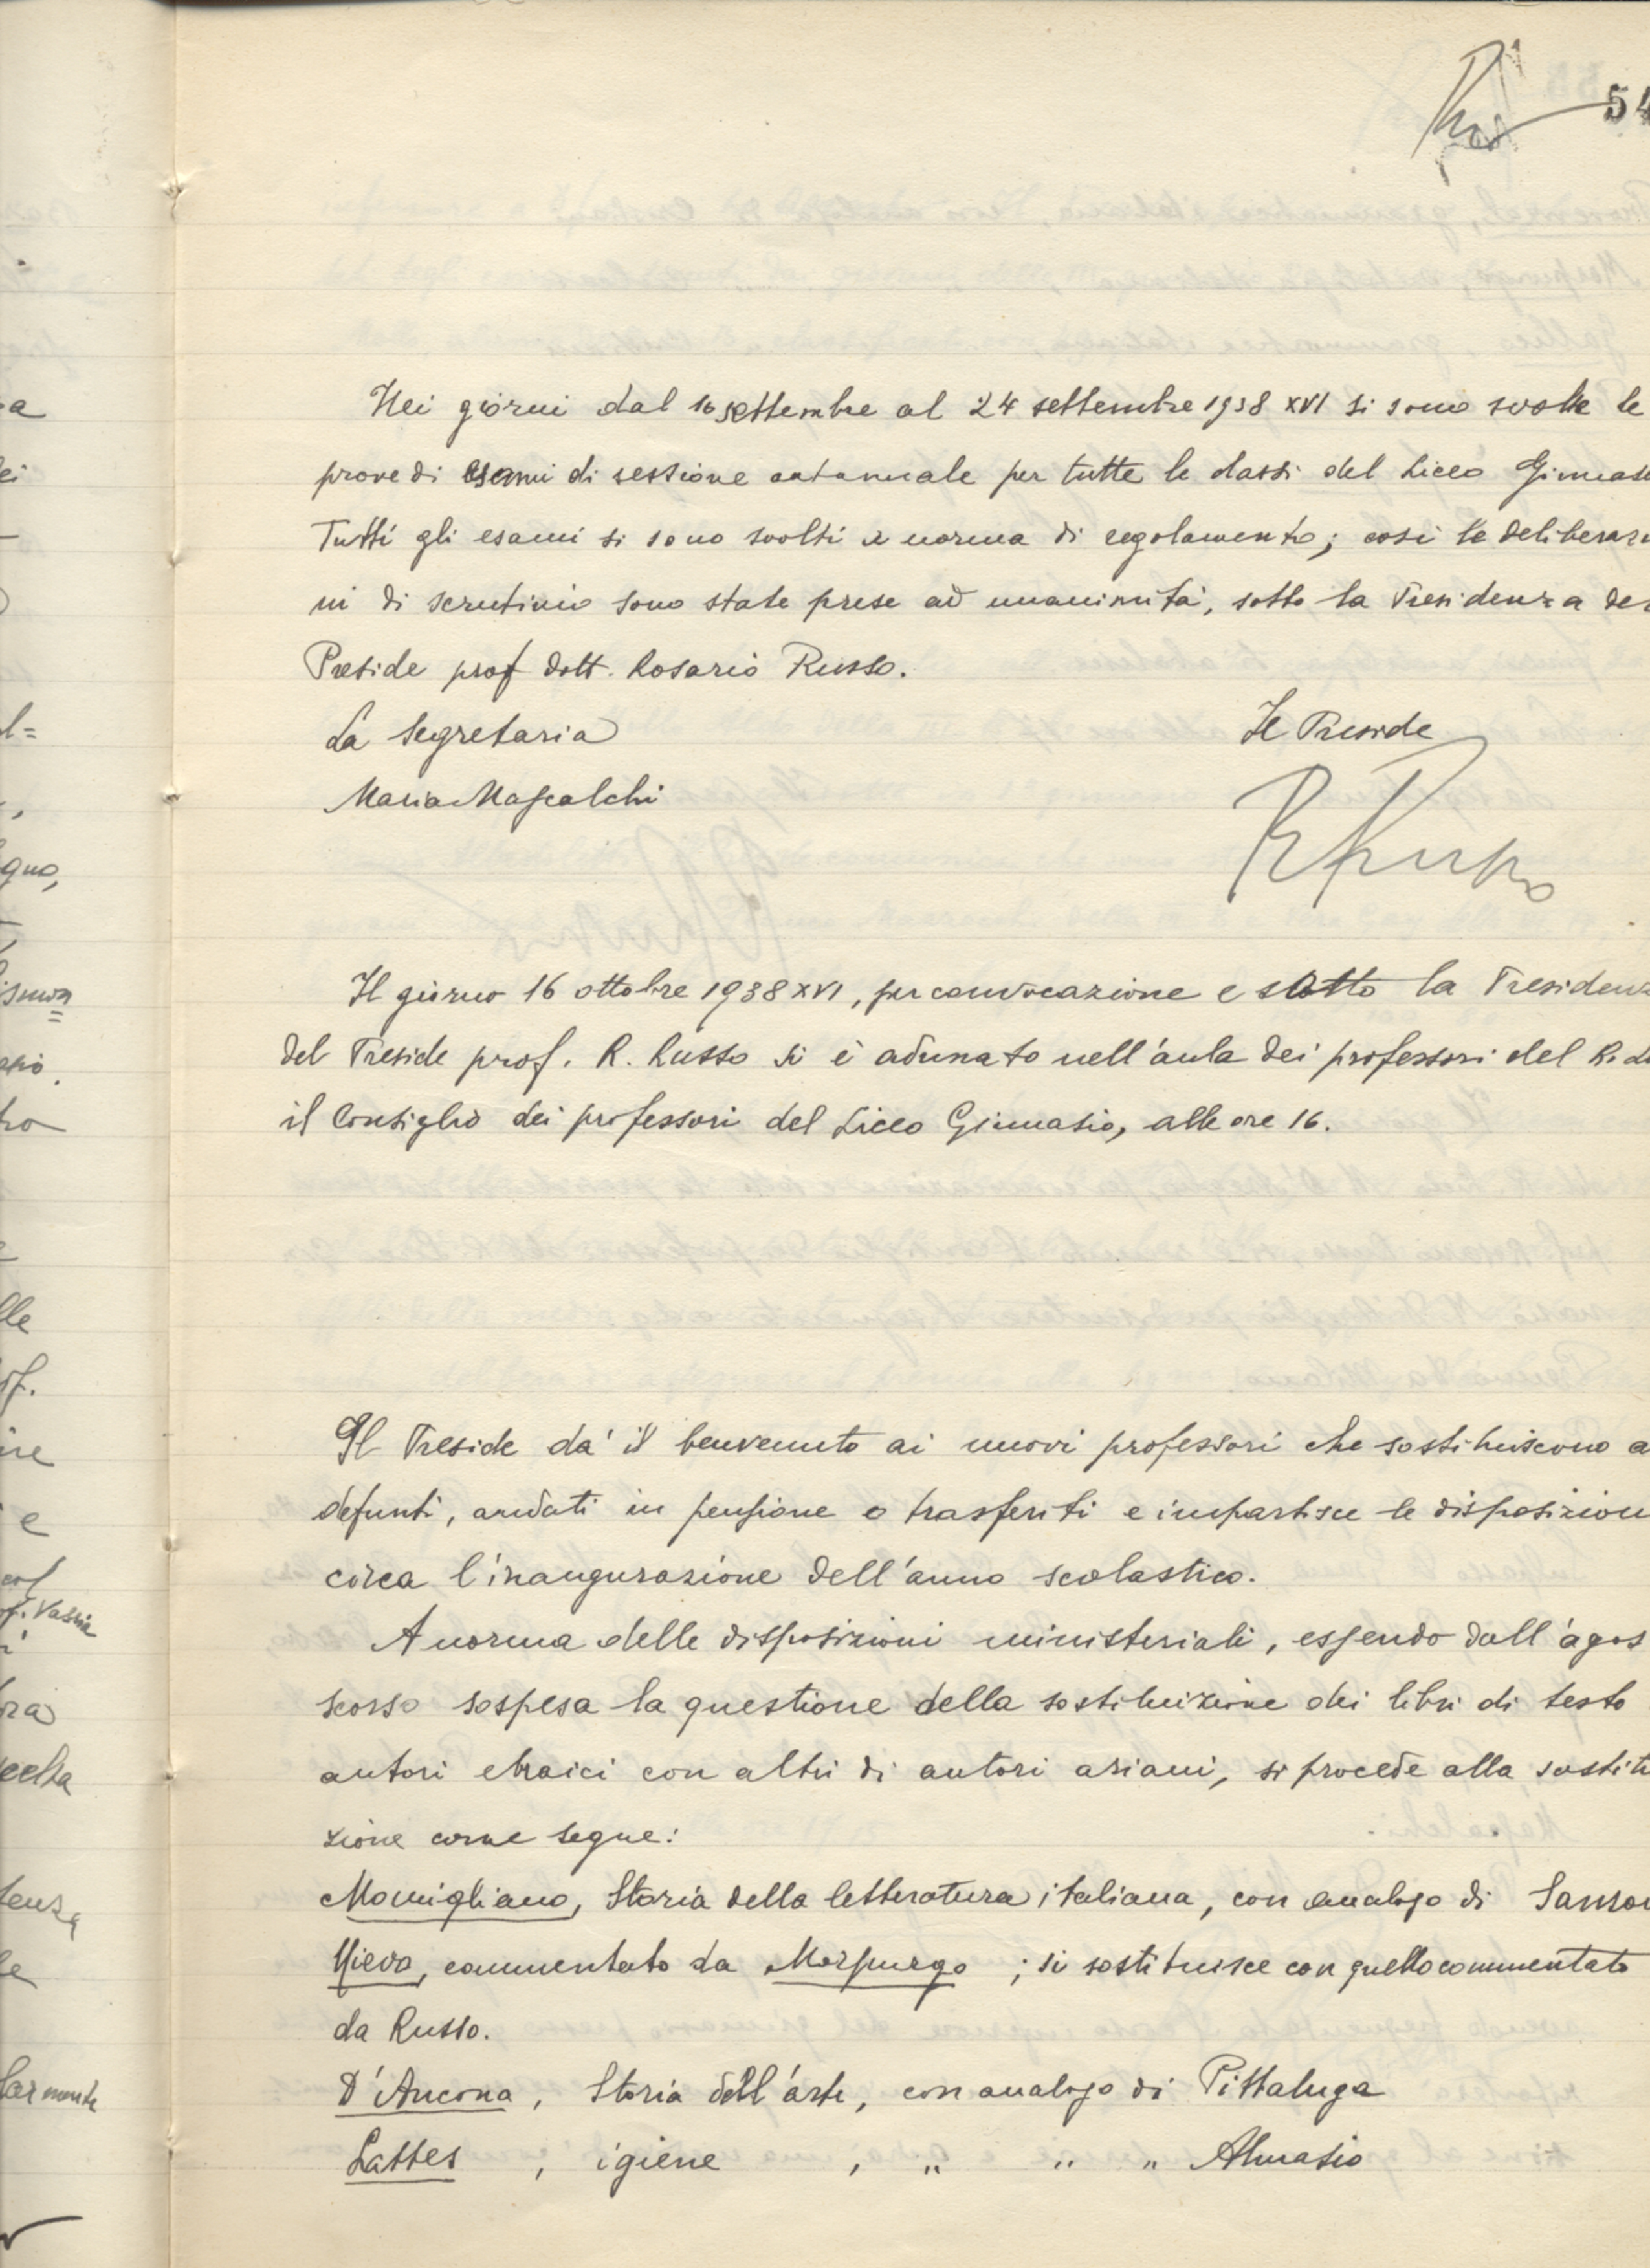 54
Nei giorni dal 16 settembre al 24 settembre 1938 XVI si sono svolte le
prove di esami di sessione autunnale per tutte le classi del Liceo Ginnas
Tutti gli esami si sono svolti a norma di regolamento; così le deliberazi
ni di scrutinio sono state prese ad unanimità, sotto la Presidenza del
Preside prof dott. Rosario Russo.
La Segretaria Il Preside
Maria Mascalchi R Russo
Il giorno 16 ottobre 1938 XVI, per convocazione e sotto la Presidenz
del Preside prof. R. Russo si è adunato nell'aula dei professori del R. Li
il Consiglio dei professori del Liceo Ginnasio, alle ore 16.
Il Preside dà il benvenuto ai nuovi professori che sostituiscono a
defunti, andati in pensione o trasferiti e impartisce le disposizion
circa l'inaugurazione dell'anno scolastico.
A norma delle disposizioni ministeriali, essendo dall'agos
scorso sospesa la questione della sostituizione dei libri di testo
autori ebraici con altri di autori ariani, si procede alla sostitu
zione come segue:
Momigliano, Storia della letteratura italiana, con analogo di Sanson
Nievo, commentato da Morpurgo; si sostituisce con quello commentato
da Russo.
D'Ancona, Storia dell'arte, con analogo di Pittaluga
Lattes, igiene, " " " Almasio